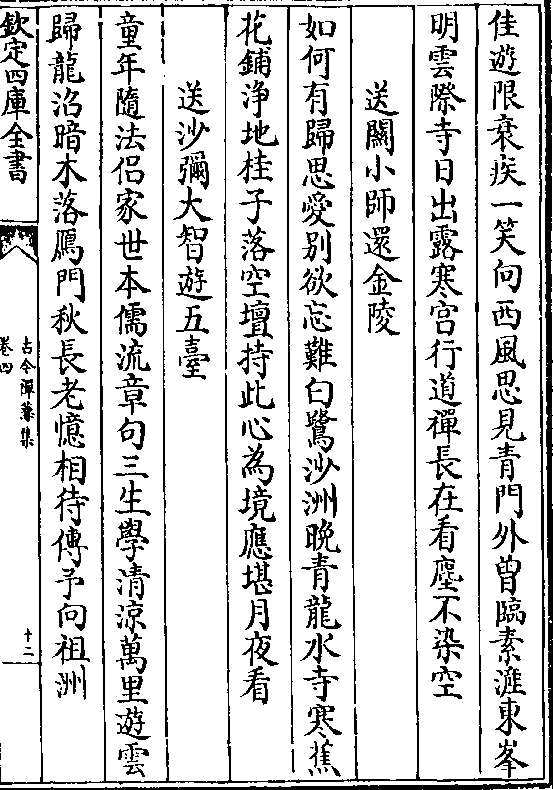 佳遊限衰疾一笑向西風思見青門外曾臨素滻東峯
明雲際寺日出露寒宫行道禪長在看塵不染空
送關小師還金陵
如何有歸思愛别欲忘難白鷺沙洲晚青龍水寺寒蕉
花鋪浄地桂子落空壇持此心為境應堪月夜看
送沙彌大智遊五臺
童年隨法侣家世本儒流章句三生學清涼萬里遊雲
歸龍沼暗木落鴈門秋長老憶相待傳予向祖洲
欽定四庫全書
古今禪藻集
卷四
十二